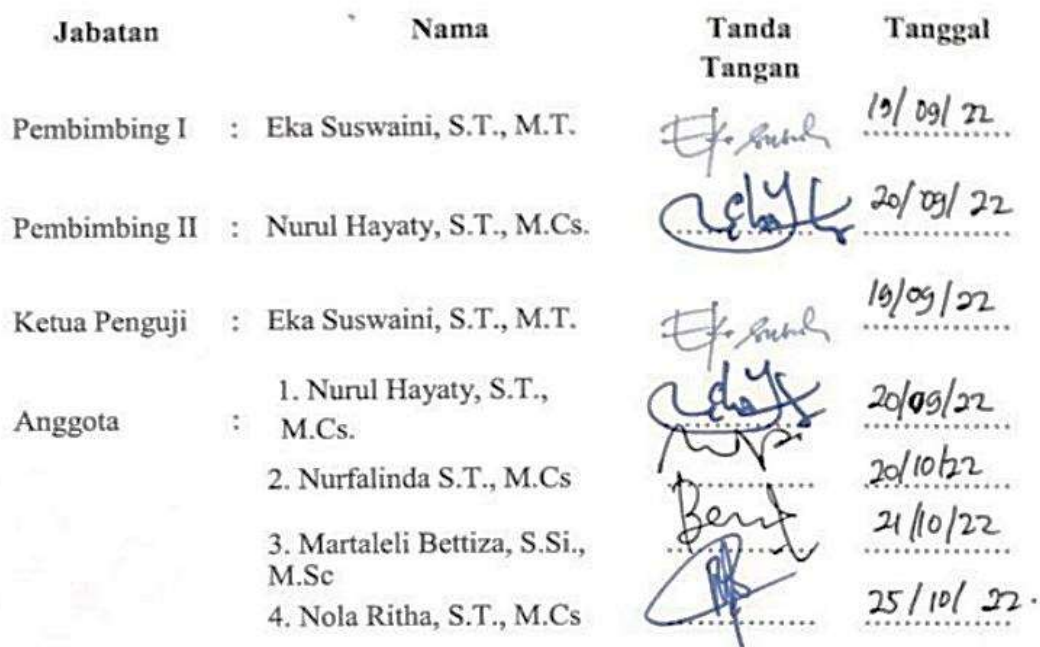 Jabatan Nama Tanda Tangan Tanggal
Pembimbing I : Eka Suswaini, S.T., M.T. 19/09/22
Pembimbing II : Nurul Hayaty, S.T., M.Cs. 20/09/22
Ketua Penguji : Eka Suswaini, S.T., M.T. 19/09/22
Anggota : 1. Nurul Hayaty, S.T., M.Cs. 20/09/22
2. Nurfalinda S.T., M.Cs 20/10/22
3. Martaleli Bettiza, S.Si., M.Sc 21/10/22
4. Nola Ritha, S.T., M.Cs 25/10/22.